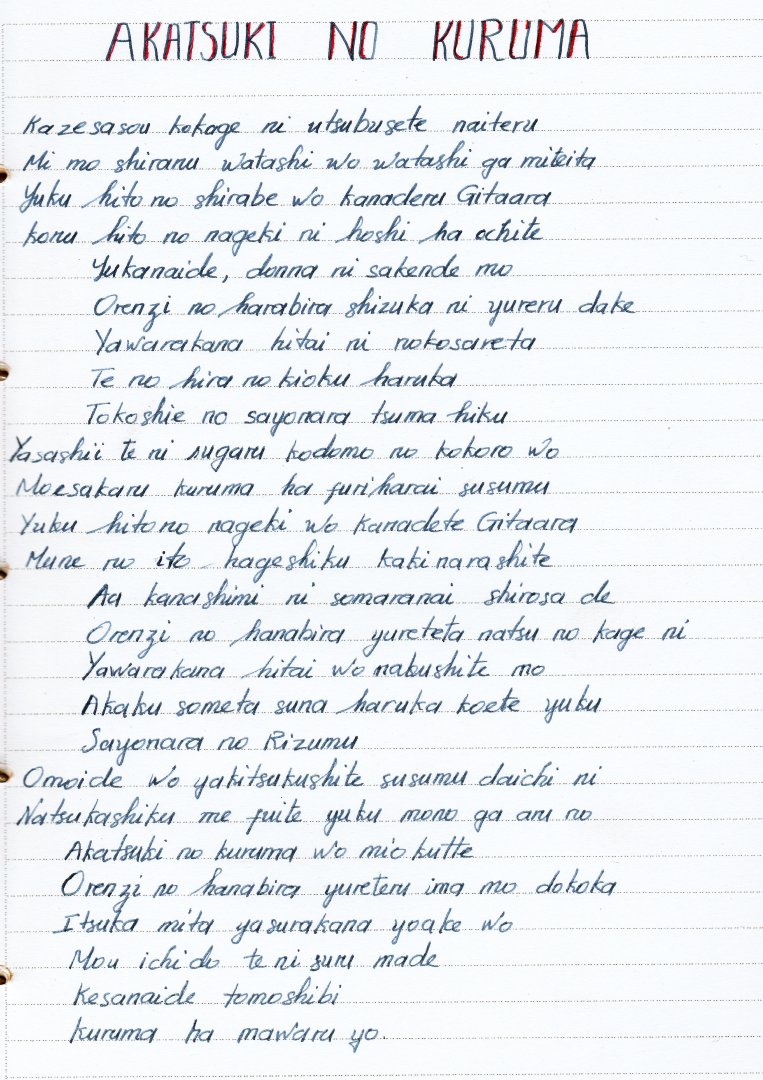 AKATSUKI NO KURUMA
Kazesasou kokage ni utsubusete naiteru
Mi mo shiranu watashi wo watashi ga miteita
Yuku hito no shirabe wo kanaderu Gitaara
Konu hito no nageki ni hoshi ha ochite
Yukanaide, donna ni sakende mo
Orenzi no harabira shizuka ni yureru dake
Yawarakana hitai ni nokosareta
Te no hira no kioku haruka
Tokoshie no sayonara tsuma hiku
Yasashii te ni sugaru kodomo no kokoro wo
Moesakaru kuruma ha furiharai susumu
Yuku hito no nageki wo kanadete Gitaara
Mune no ito hageshiku kakinarashite
Aa kanashimi ni somaranai shirosa de
Orenzi no hanabira yureteta natsu no kage ni
Yawarakana hitai wo nabushite mo
Akaku someta suna haruka koete yuku
Sayonara no Rizumu
Omoide wo yakitsukushite susumu daichi ni
Natsukashiku me fuite yuku mono ga aru no
Akatsuki no kuruma wo miokutte
Orenzi no hanabira yureteru ima mo dokoka
Itsuka mita yasurakana yoake wo
Mou ichido te ni suru made
Kesanaide tomoshibi
Kuruma ha mawaru yo.